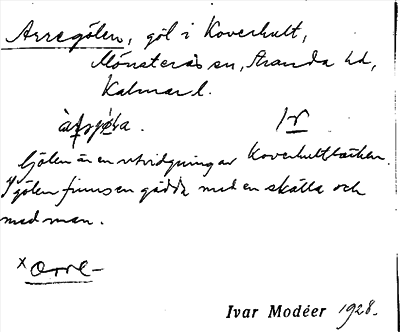 Arregölen, göl i Koverhult,
Mönsterås sn, Stranda hd,
Kalmar l.
Gölen är en utvidgning av Koverhultbäcken.
I gölen finns en gädda med en skälla och
med man.
x Orre-
Ivar Modéer 1928.